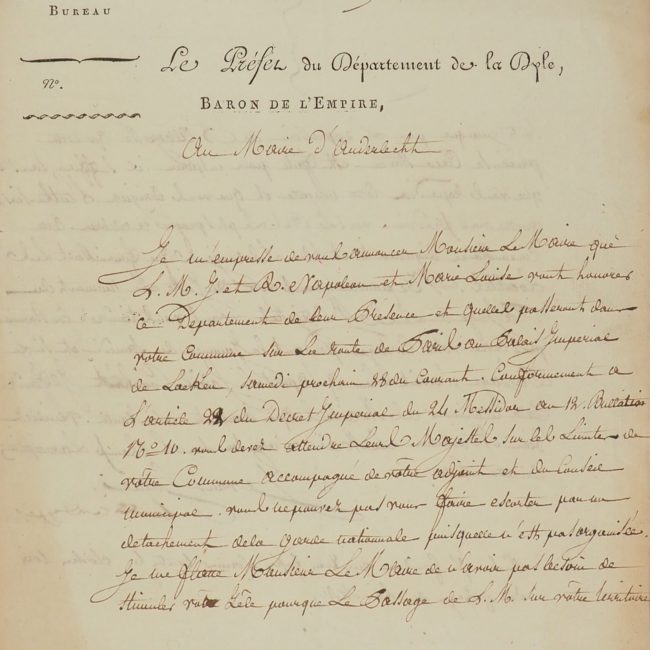 BUREAU
Le Préfet du Département de la Dyle,
No.
BARON DE L'EMPIRE,
Au Maire d'anderlecht
Je m'empresse de vous annoncer Monsieur Le Maire que
L. M. I. et R. Napoleon et Marie Louise vont honorer
ce Departement de leur Presence et quelles passeront dans
votre Commune sur La route de Paris au Palais Imperial
de Laeken, samedi prochain 28 du Courant. Conformement a
L'article 22 du Decret Imperial du 24 Messidor an 12. Bulletin
No 10. vous devez attendre Leurs Majestes sur les Limites de
votre Commune accompagné de votre adjoint et du Conseil
municipal. vous ne pouvez pas vous faire escorter par un
detachement de la garde nationale puisquelle n'est pas organisée.
Je me flatte Monsieur Le Maire de n'avoir pas besoin de
stimuler votre Zèle pourque Le Passage de L. M. sur vôtre territoire